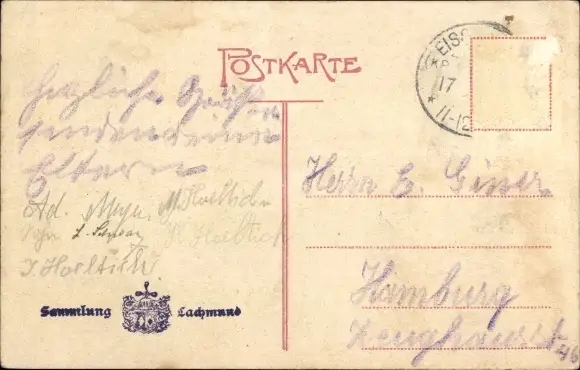 POSTKARTE
EISS
17
11-12
Herzliche Grüße
senden deine
Eltern
Ad. Meyer. M. Hoeltich
K. Hoeltich
J. Hoeltich
Sammlung Lachmund
Herrn E. Giner
Hamburg
Zeughausstr 46